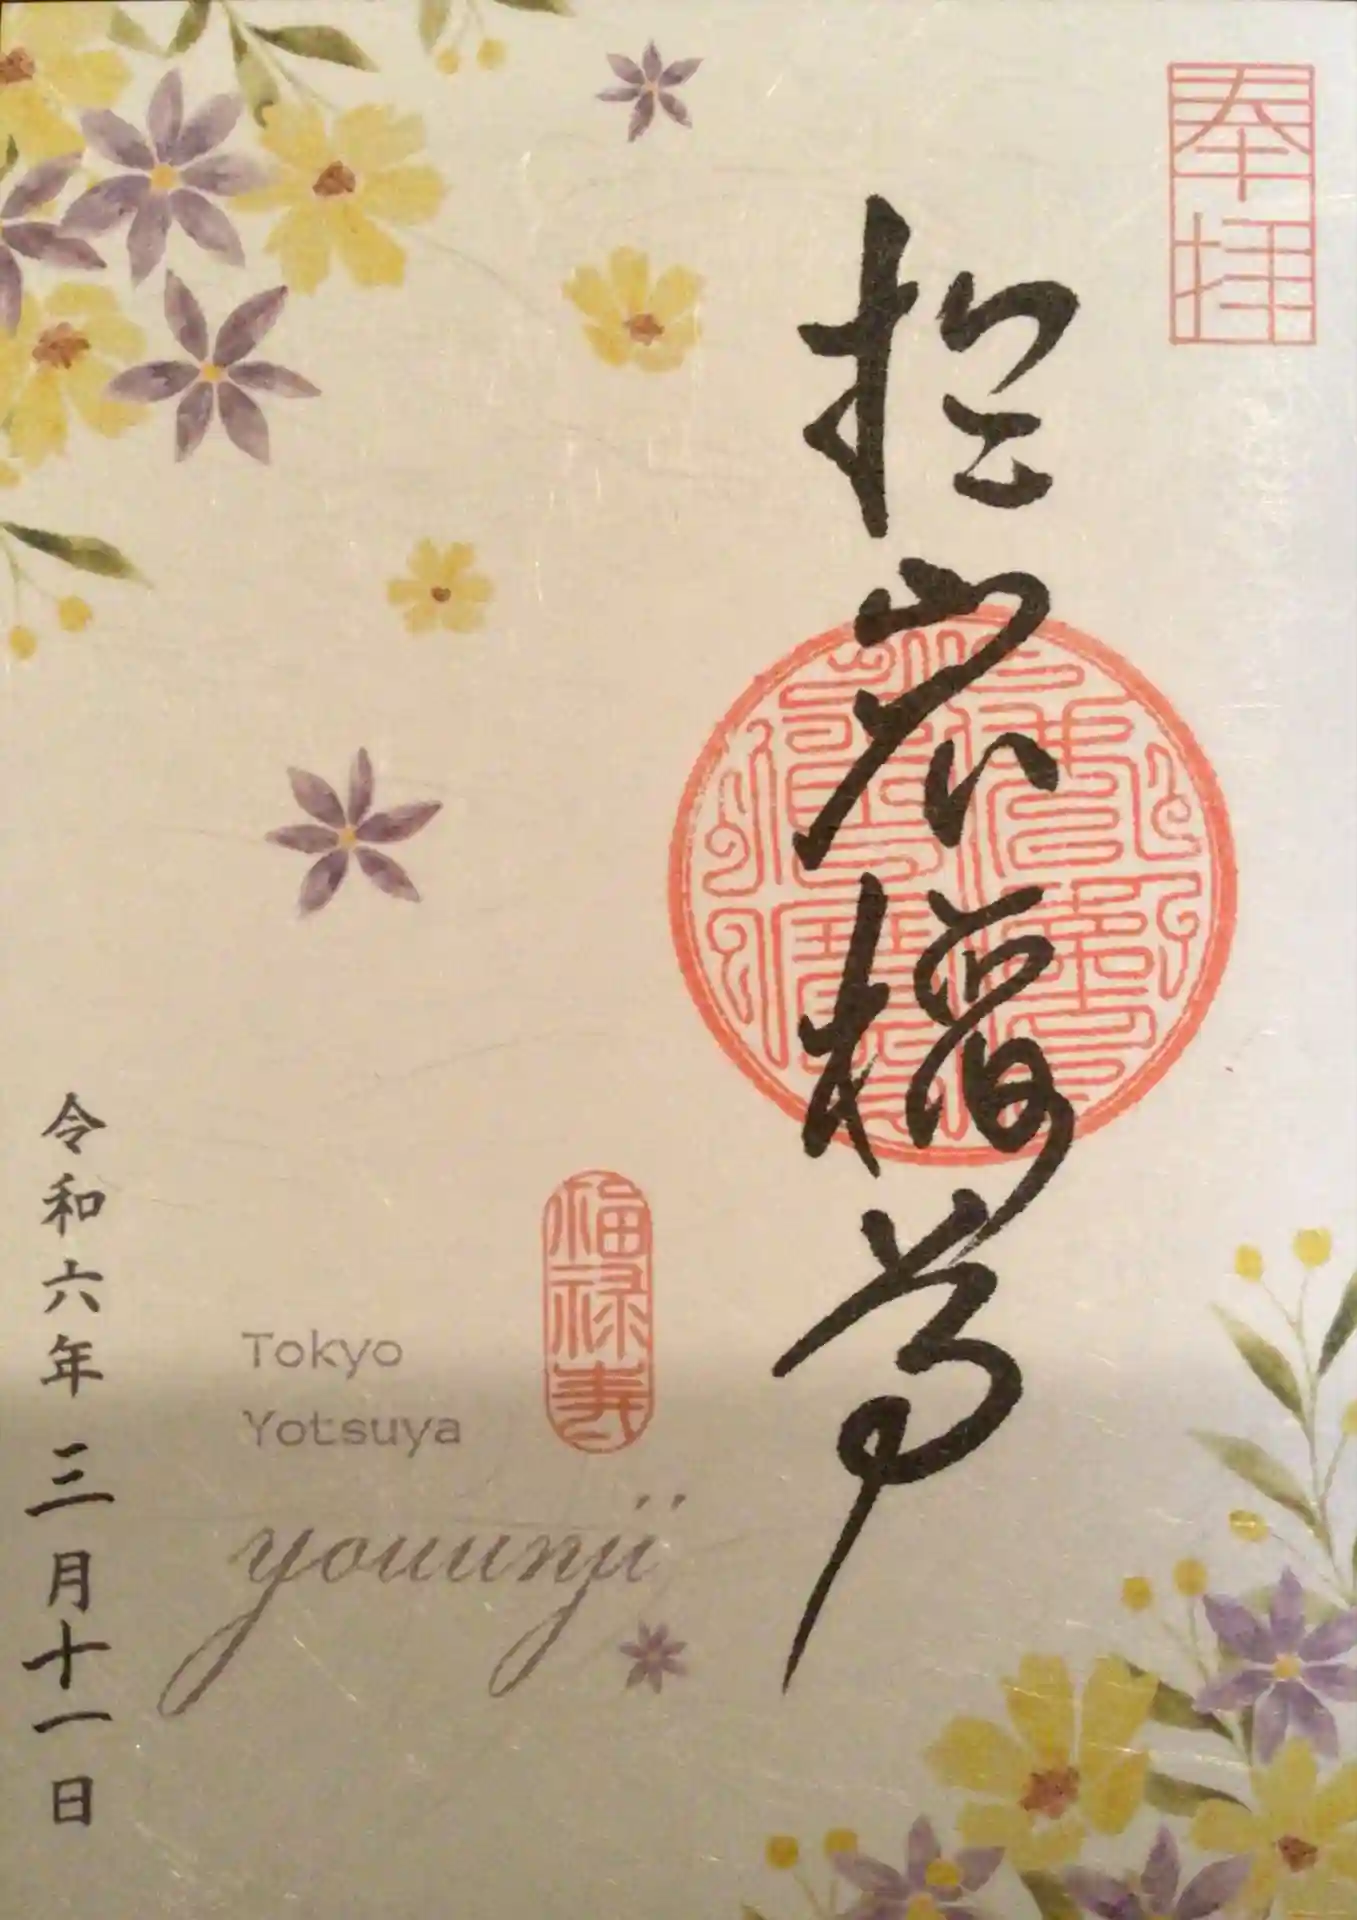 奉拝
於岩稲荷
福禄寿
Tokyo
Yotsuya
youunji
令和六年三月十一日